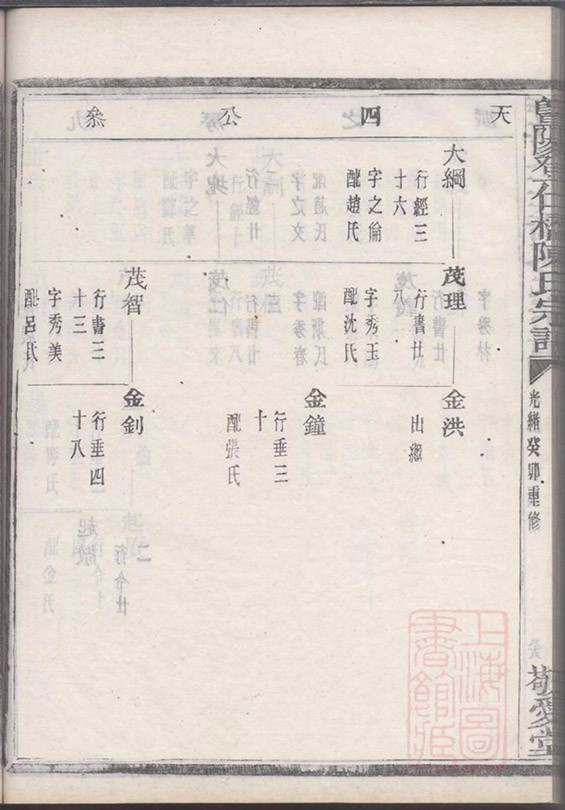 陳氏宗譜
光緒癸卯重修
敬愛堂
天四公叅
大綱
行經三
十六
字之倫
配趙氏
茂理
行書廿
八
字秀玉
配沈氏
茂智
行書三
十三
字秀美
配呂氏
金洪
出繼
金鐘
行垂三
十
配張氏
金釗
行垂四
十八
上海圖
書館藏